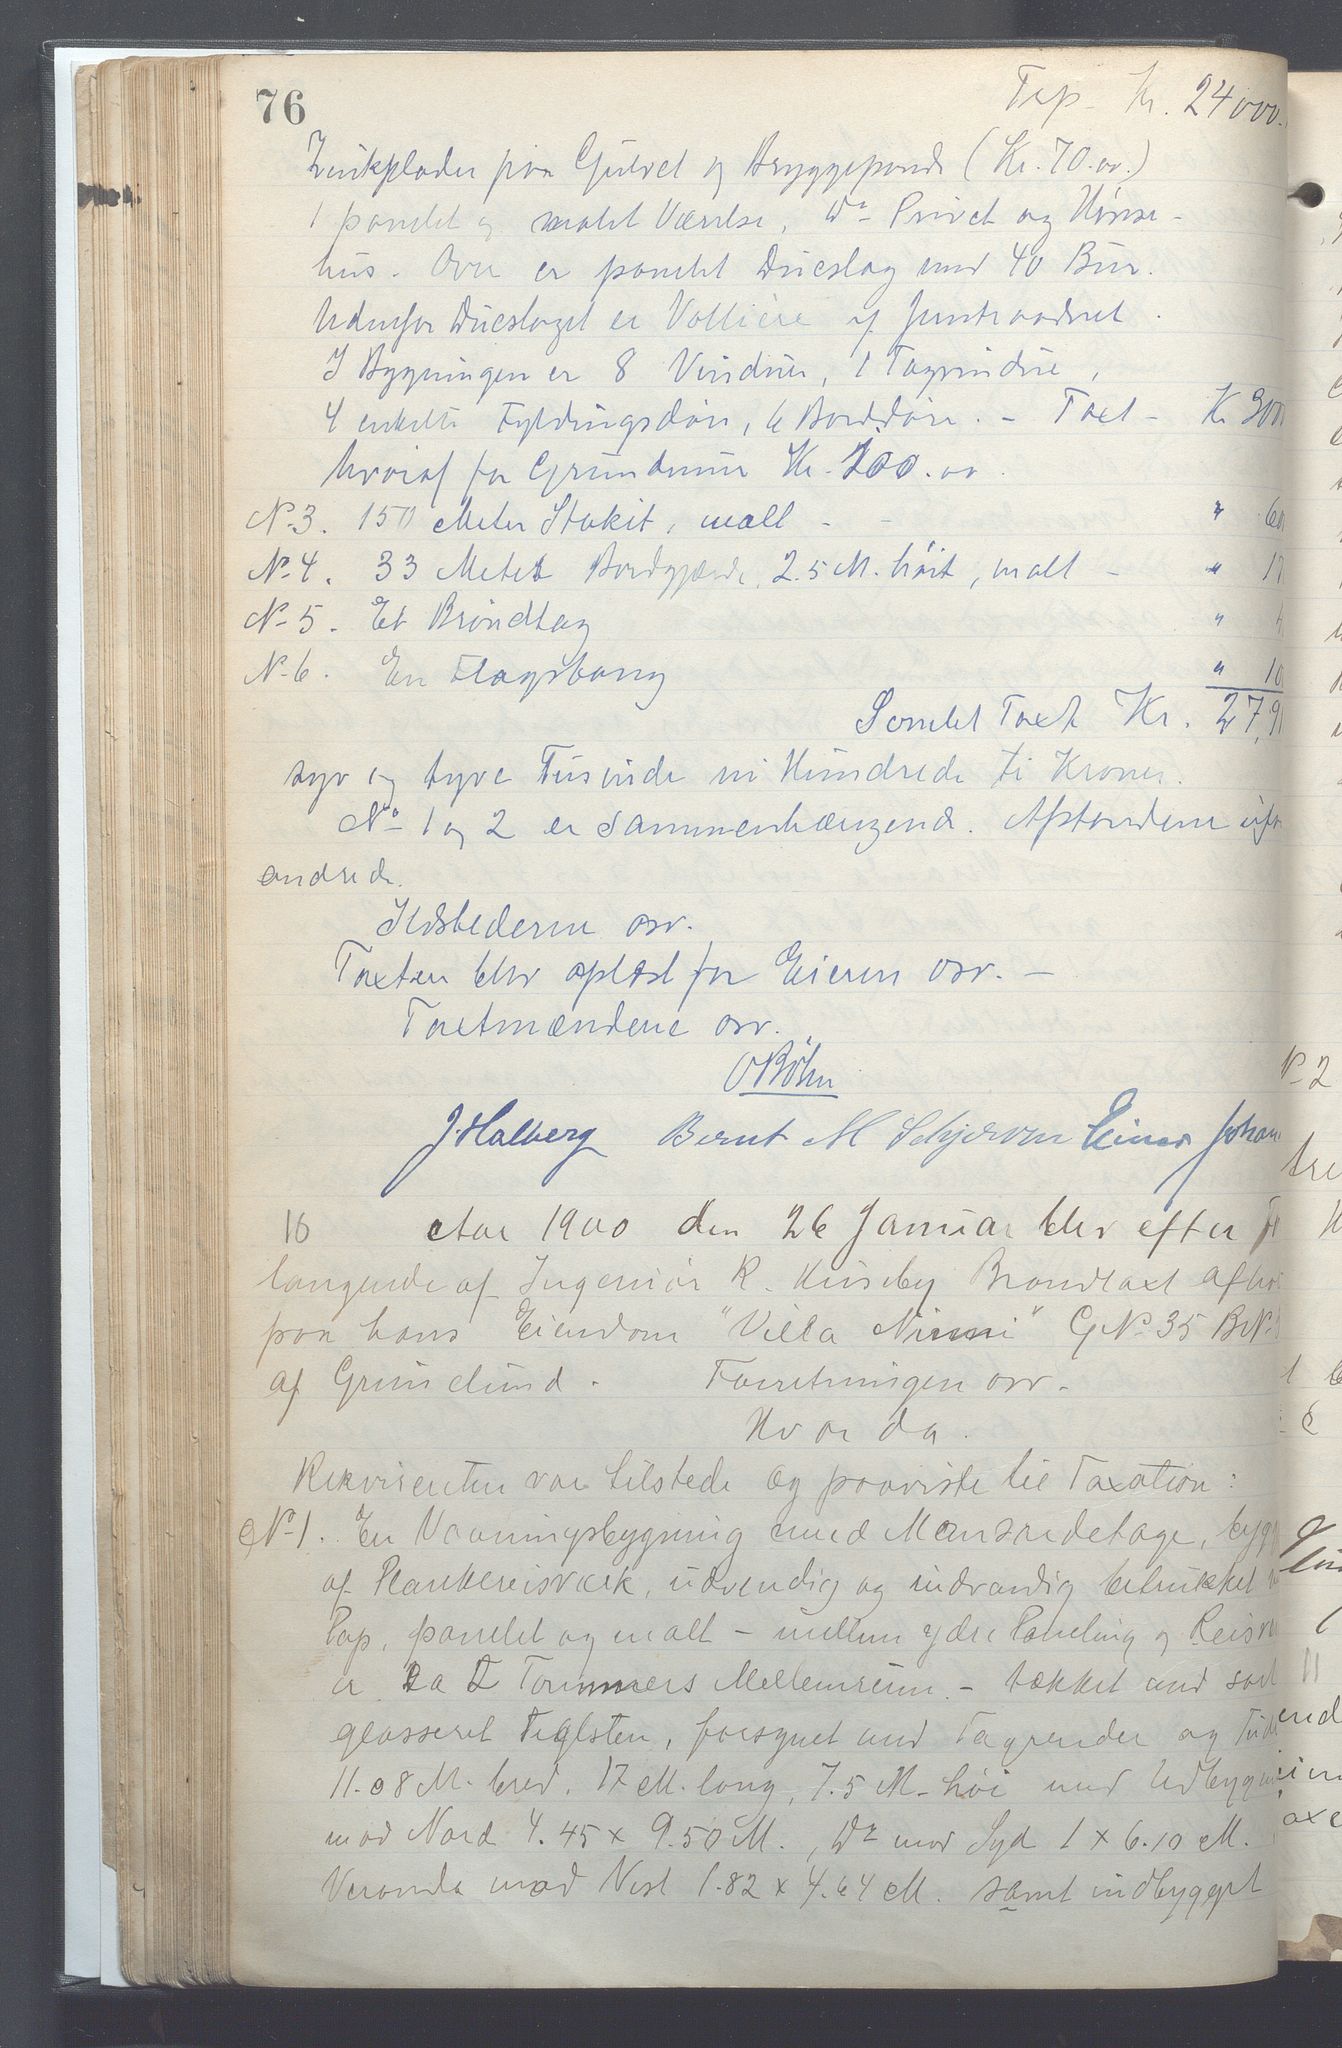 76
Trp - Kr. 24000.
Zinkplader paa Gulvet og Bryggepande (Kr. 70.oo.)
1 panelet og malet Værelse, Do Privet og Hønse-
hus. Over er panelet Dueslag med 40 Bur.
Udenfor Dueslaget er Volliere af Jerntraadnet.
I Bygningen er 8 Vinduer, 1 Tagvindue,
4 enkelte Fyldingsdøre, 6 Borddøre. - Taxt - Kr 300
hvoraf for Grundmur Kr. 200.oo.
No 3. 150 Meter Stakit, malt - - " 60
No 4. 33 Meter Bordgjærde, 2.5 M. høit, malt - " 17
No 5. Et Brøndtag "
No 6. En Flagstang " 10
Samlet Taxt Kr. 27,91
syv og tyve Tusinde ni Hundrede ti Kroner.
No 1 og 2 er sammenhængende. Afstandene ufor
andrede.
Ildstederne osv.
Taxten blev oplæst for Eieren osv. -
Taxtmændene osv.
O Bøhn
J. Halberg Bernt M Schjerven Einar Johan
16 Aar 1900 den 26 Januar blev efter F
langende af Ingeniør R. Huseby Brandtaxt afho
paa hans Eiendom "Villa Ninni" GNo 35 BNo
af Grimelund. Forretningen osv.
Hvor da.
Rekvirenten var tilstede og paaviste til Taxation:
No 1. En Vaaningsbygning med Mansardetage, byg
af Plankereisværk, udvendig og indvendig betrukket
Pap, panelet og malt - mellem ydre Paneling og Reisv
er ca 2 Tommers Mellemrum - tækket med sort
glasseret Teglsten, forsynet med Tagrender og
11.08 M. bred, 17 M. lang, 7.5 M. høi med Udbygn
mod Nord 4.45 x 9.50 M., Do mod Syd 1 x 6.10 M.
Veranda mod Vest 1.82 x 4.64 M. samt indbygget